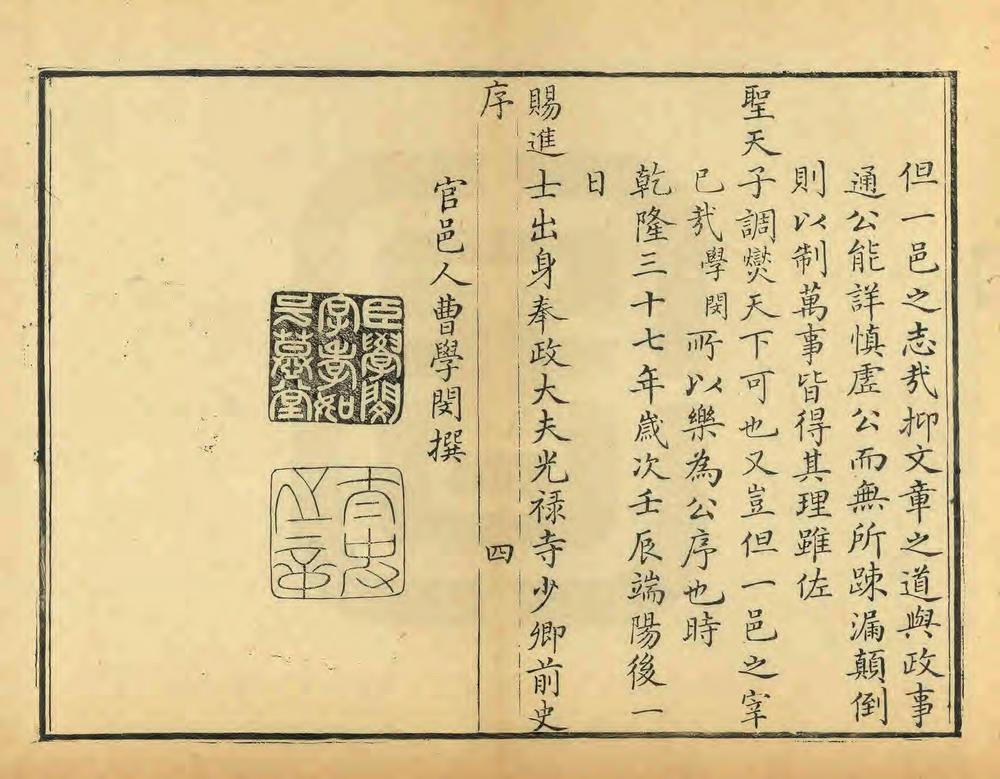 但一邑之志㢤抑文章之道與政事
通公能詳慎虛公而無所踈漏顛倒
則以制萬事皆得其理雖佐
聖天子調爕天下可也又豈但一邑之宰
已㢤學閔所以樂為公序也時
乾隆三十七年歲次壬辰端陽後一
日
賜進士出身奉政大夫光禄寺少卿前史
序
四
官邑人曹學閔撰
臣學閔
字孝如
太史
之章